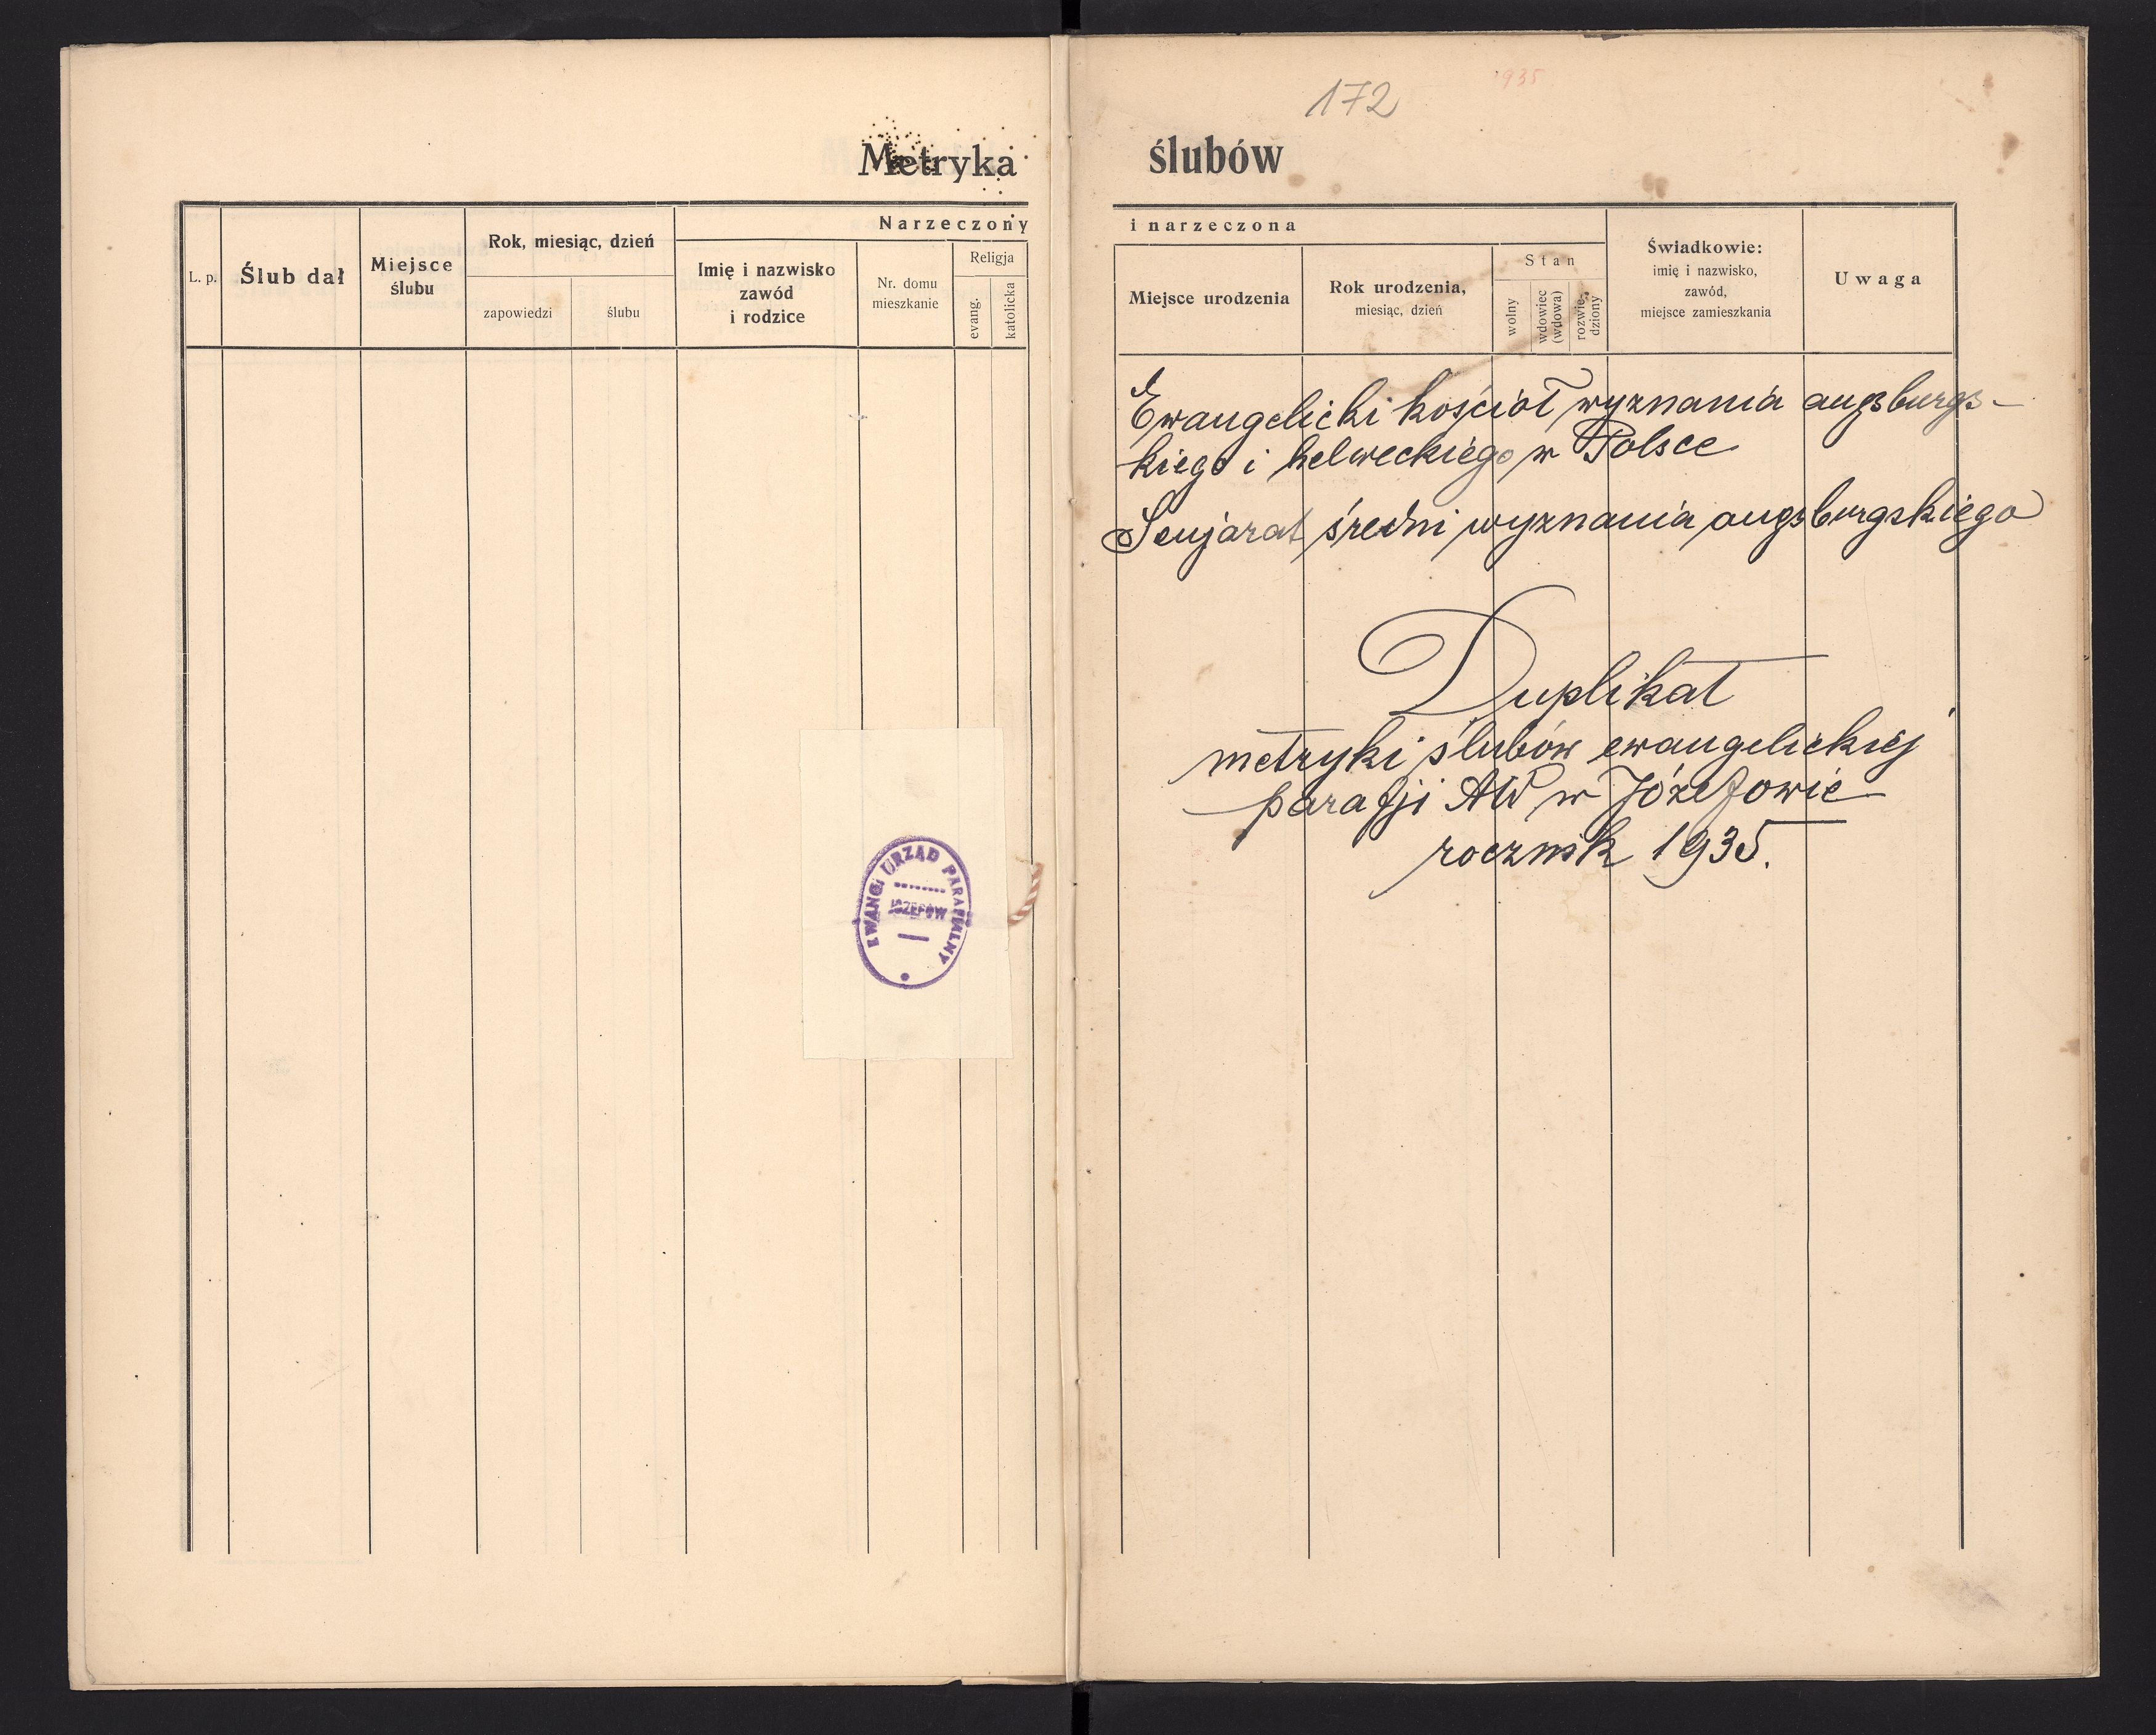 172
935
Metryka ślubów
Narzeczony i narzeczona
L. p.
Ślub dał
Miejsce
ślubu
Rok, miesiąc, dzień
zapowiedzi
ślubu
Imię i nazwisko
zawód
i rodzice
Nr. domu
mieszkanie
Religja
evang.
katolicka
Miejsce urodzenia
Rok urodzenia,
miesiąc, dzień
Stan
wolny
wdowiec
(wdowa)
rozwie-
dziony
Świadkowie:
imię i nazwisko,
zawód,
miejsce zamieszkania
Uwaga
Ewangelicki kościół wyznania augsburgs-
kiego i helweckiego w Polsce
Senjorat średni wyznania augsburgskiego
Duplikat
metryki ślubów ewangelickiej
parafji AW w Józefowie
rocznik 1935.
EWANG. URZĄD PARAFIALNY
JÓZEFÓW